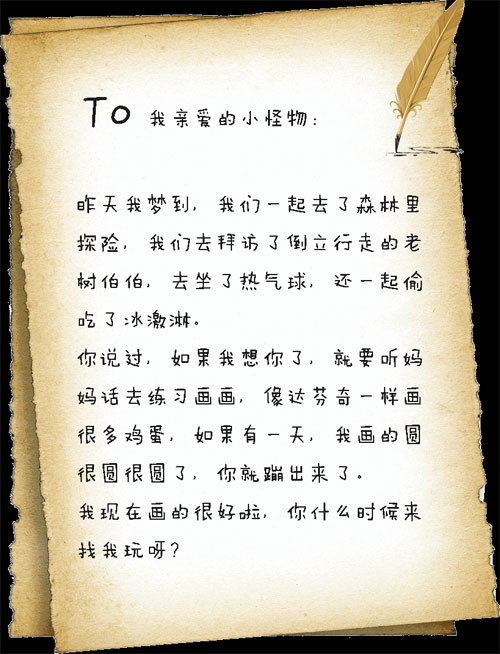 To 我亲爱的小怪物：
昨天我梦到，我们一起去了森林里
探险，我们去拜访了倒立行走的老
树伯伯，去坐了热气球，还一起偷
吃了冰激淋。
你说过，如果我想你了，就要听妈
妈话去练习画画，像达芬奇一样画
很多鸡蛋，如果有一天，我画的圆
很圆很圆了，你就蹦出来了。
我现在画的很好啦，你什么时候来
找我玩呀？